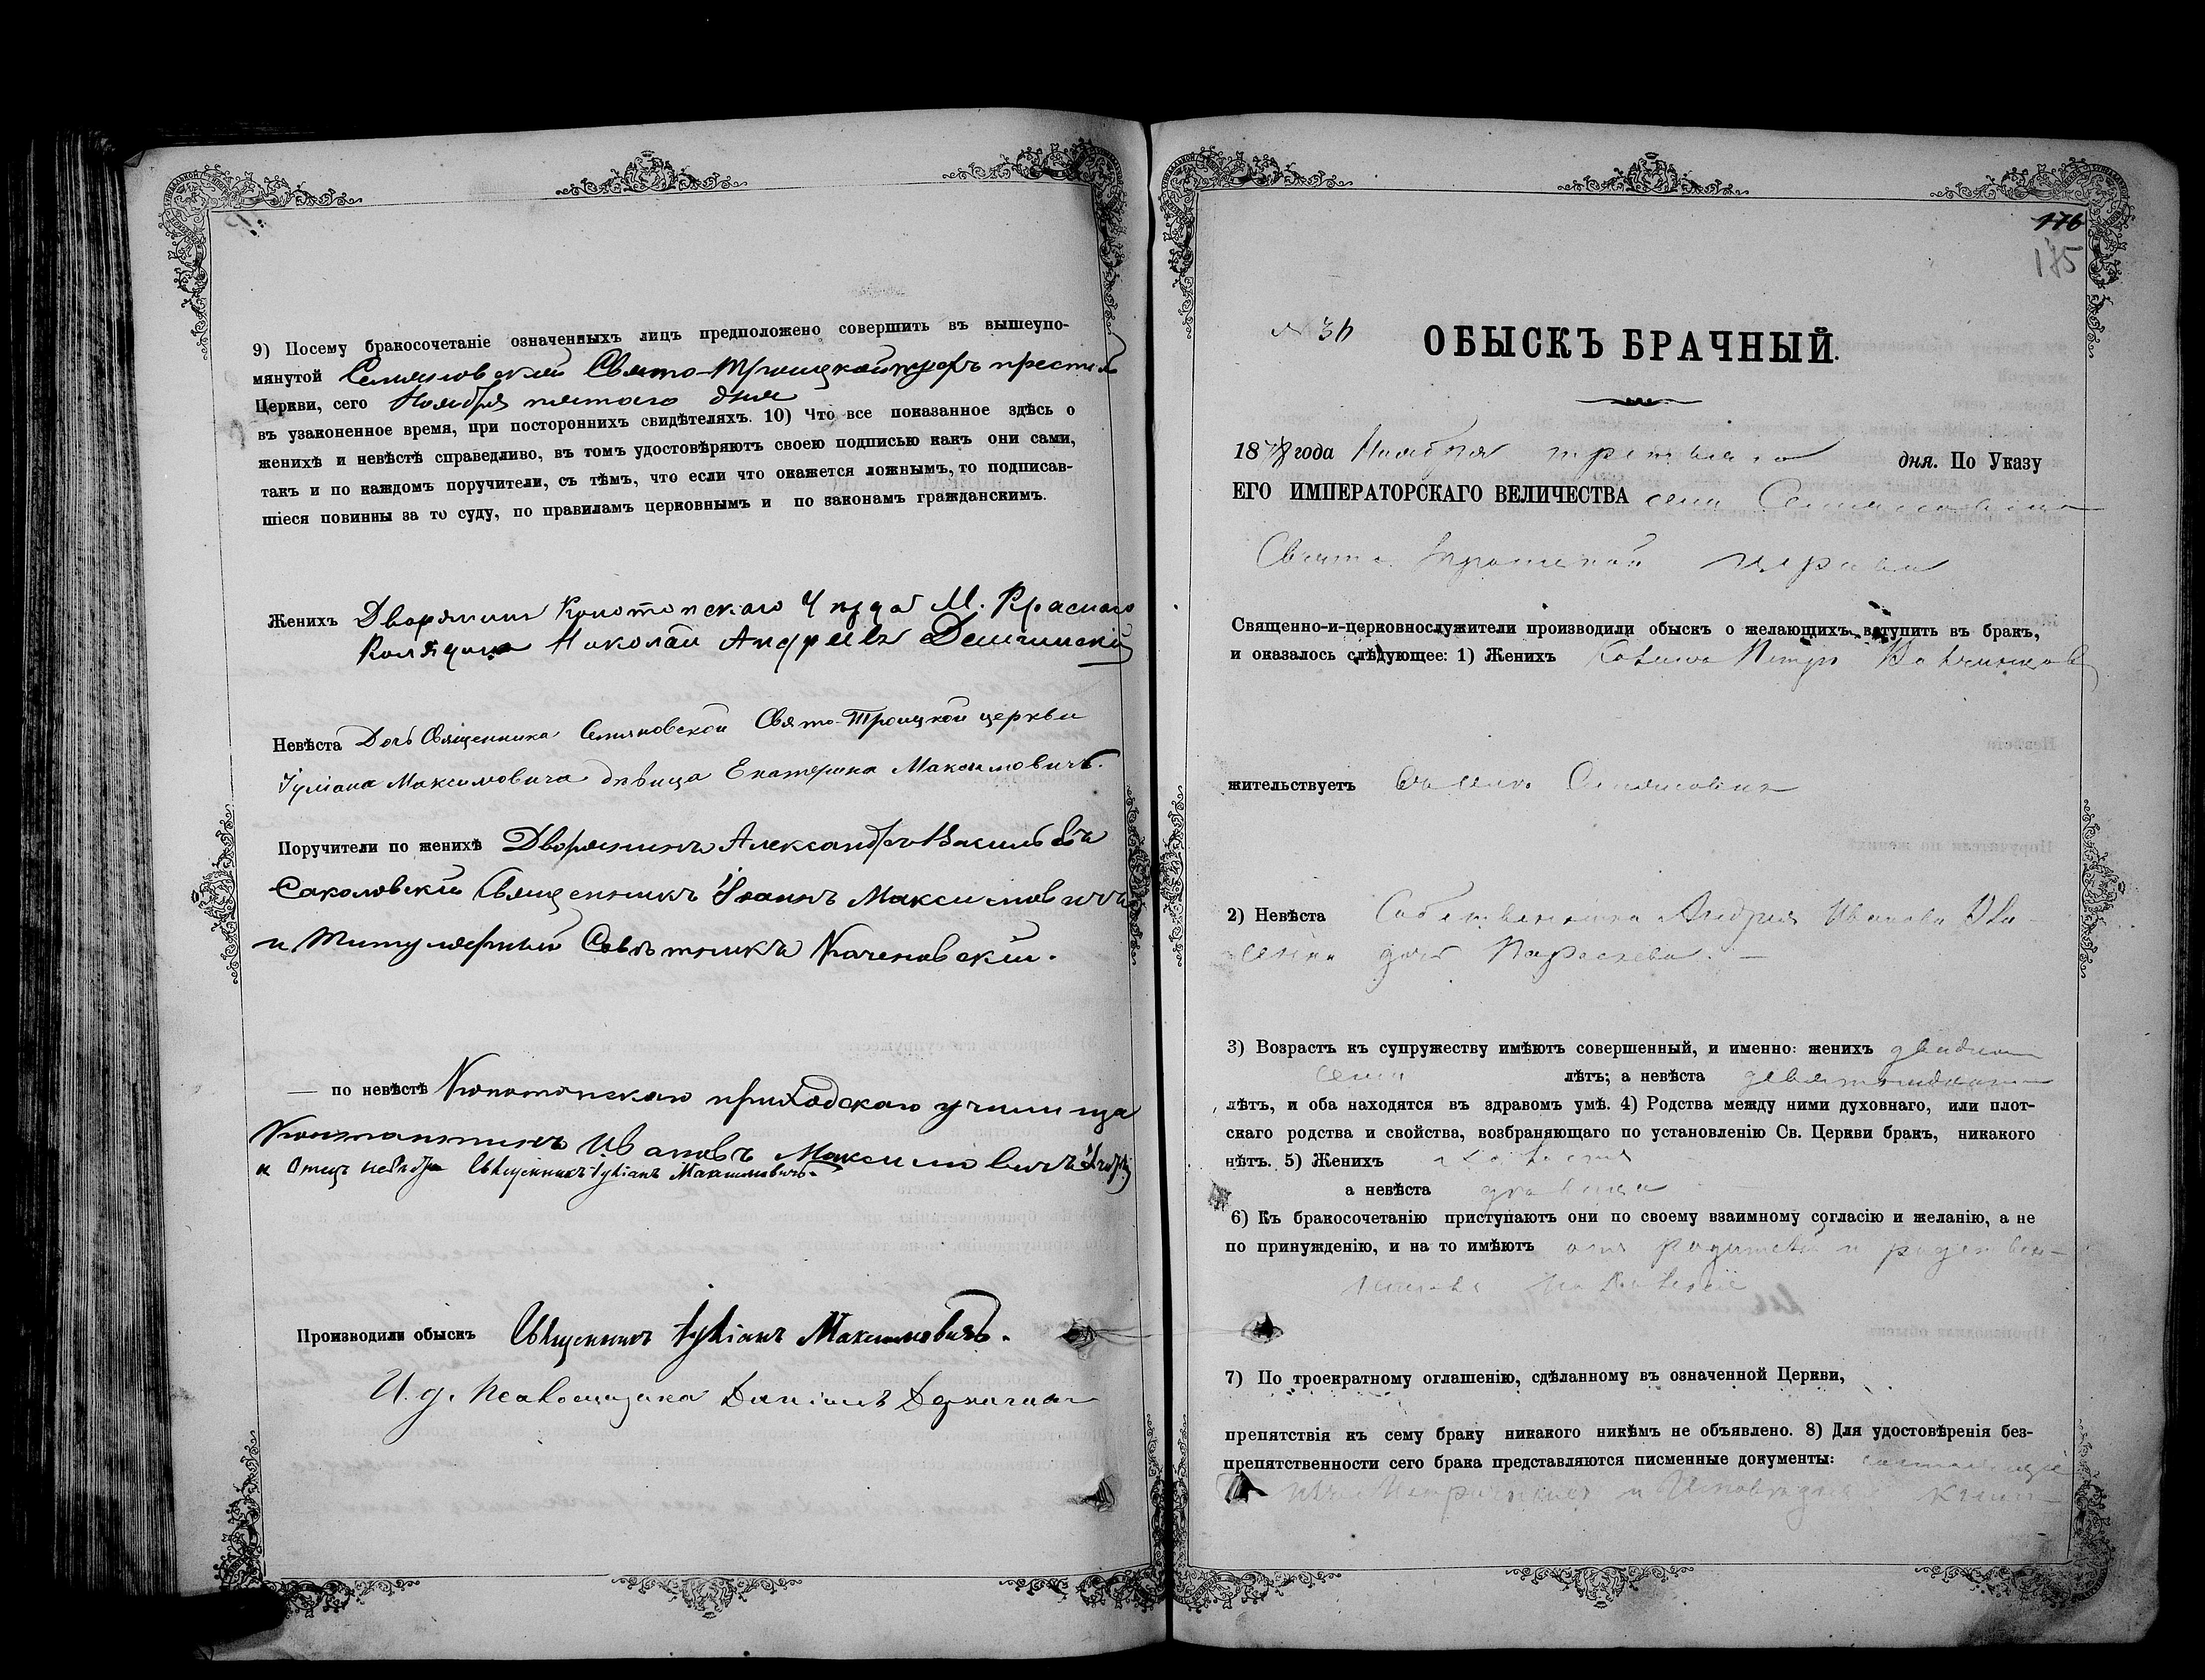 9) Посему бракосочетаніе означенныхъ лицъ предположено совершить въ вышеупо-
мянутой Семяновской Свято-Троицкой
Церкви, сего Ноября пятого дня
въ узаконенное время, при постороннихъ свидѣтеляхъ. 10) Что все показанное здѣсь о
женихѣ и невѣстѣ справедливо, въ томъ удостовѣряютъ своею подписью какъ они сами,
такъ и по каждомъ поручители, съ тѣмъ, что если что окажется ложнымъ, то подписав-
шіеся повинны за то суду, по правиламъ церковнымъ и по законамъ гражданскимъ.
Женихъ Дворянин Конотопскаго М. Краснаго
Колядина Николай Андреевъ
Невѣста Дочь Священника Семяновской Свято-Троицкой церкви
Іуліана Максимовича дѣвица Екатерина Максимовичъ.
Поручители по женихѣ Дворянинъ Александръ Васильевъ
Саколовский Священникъ Іоаннъ Максимовичъ
и Титулярный Совѣтникъ Каченовский.
— по невѣстѣ Конотопскаго приходскаго училища
Константинъ Ивановъ Максимовичъ
и Отец невѣсты Священникъ Іуліанъ Максимовичъ.
Производили обыскъ Священникъ Іуліанъ Максимовичъ.
И. д. Псаломщика Даніилъ
176
175
№ 36
ОБЫСКЪ БРАЧНЫЙ.
1878 года Ноября третьяго дня. По Указу
ЕГО ИМПЕРАТОРСКАГО ВЕЛИЧЕСТВА села Семяновки
Свято Троицкой церкви
Священно-и-церковнослужители производили обыскъ о желающихъ вступить въ бракъ,
и оказалось слѣдующее: 1) Женихъ Петръ
жительствуетъ въ селѣ Семяновкѣ
2) Невѣста Андрея Иванова
дочь Параскева. —
3) Возрастъ къ супружеству имѣютъ совершенный, и именно: женихъ двадцати
семи лѣтъ; а невѣста девятнадцати
лѣтъ, и оба находятся въ здравомъ умѣ. 4) Родства между ними духовнаго, или плот-
скаго родства и свойства, возбраняющаго по установленію Св. Церкви бракъ, никакого
нѣтъ. 5) Женихъ
а невѣста дѣвица
6) Къ бракосочетанію приступаютъ они по своему взаимному согласію и желанію, а не
по принужденію, и на то имѣютъ отъ родителей и родствен-
никовъ
7) По троекратному оглашенію, сдѣланному въ означенной Церкви,
препятствія къ сему браку никакого никѣмъ не объявлено. 8) Для удостовѣренія без-
препятственности сего брака представляются писменные документы: